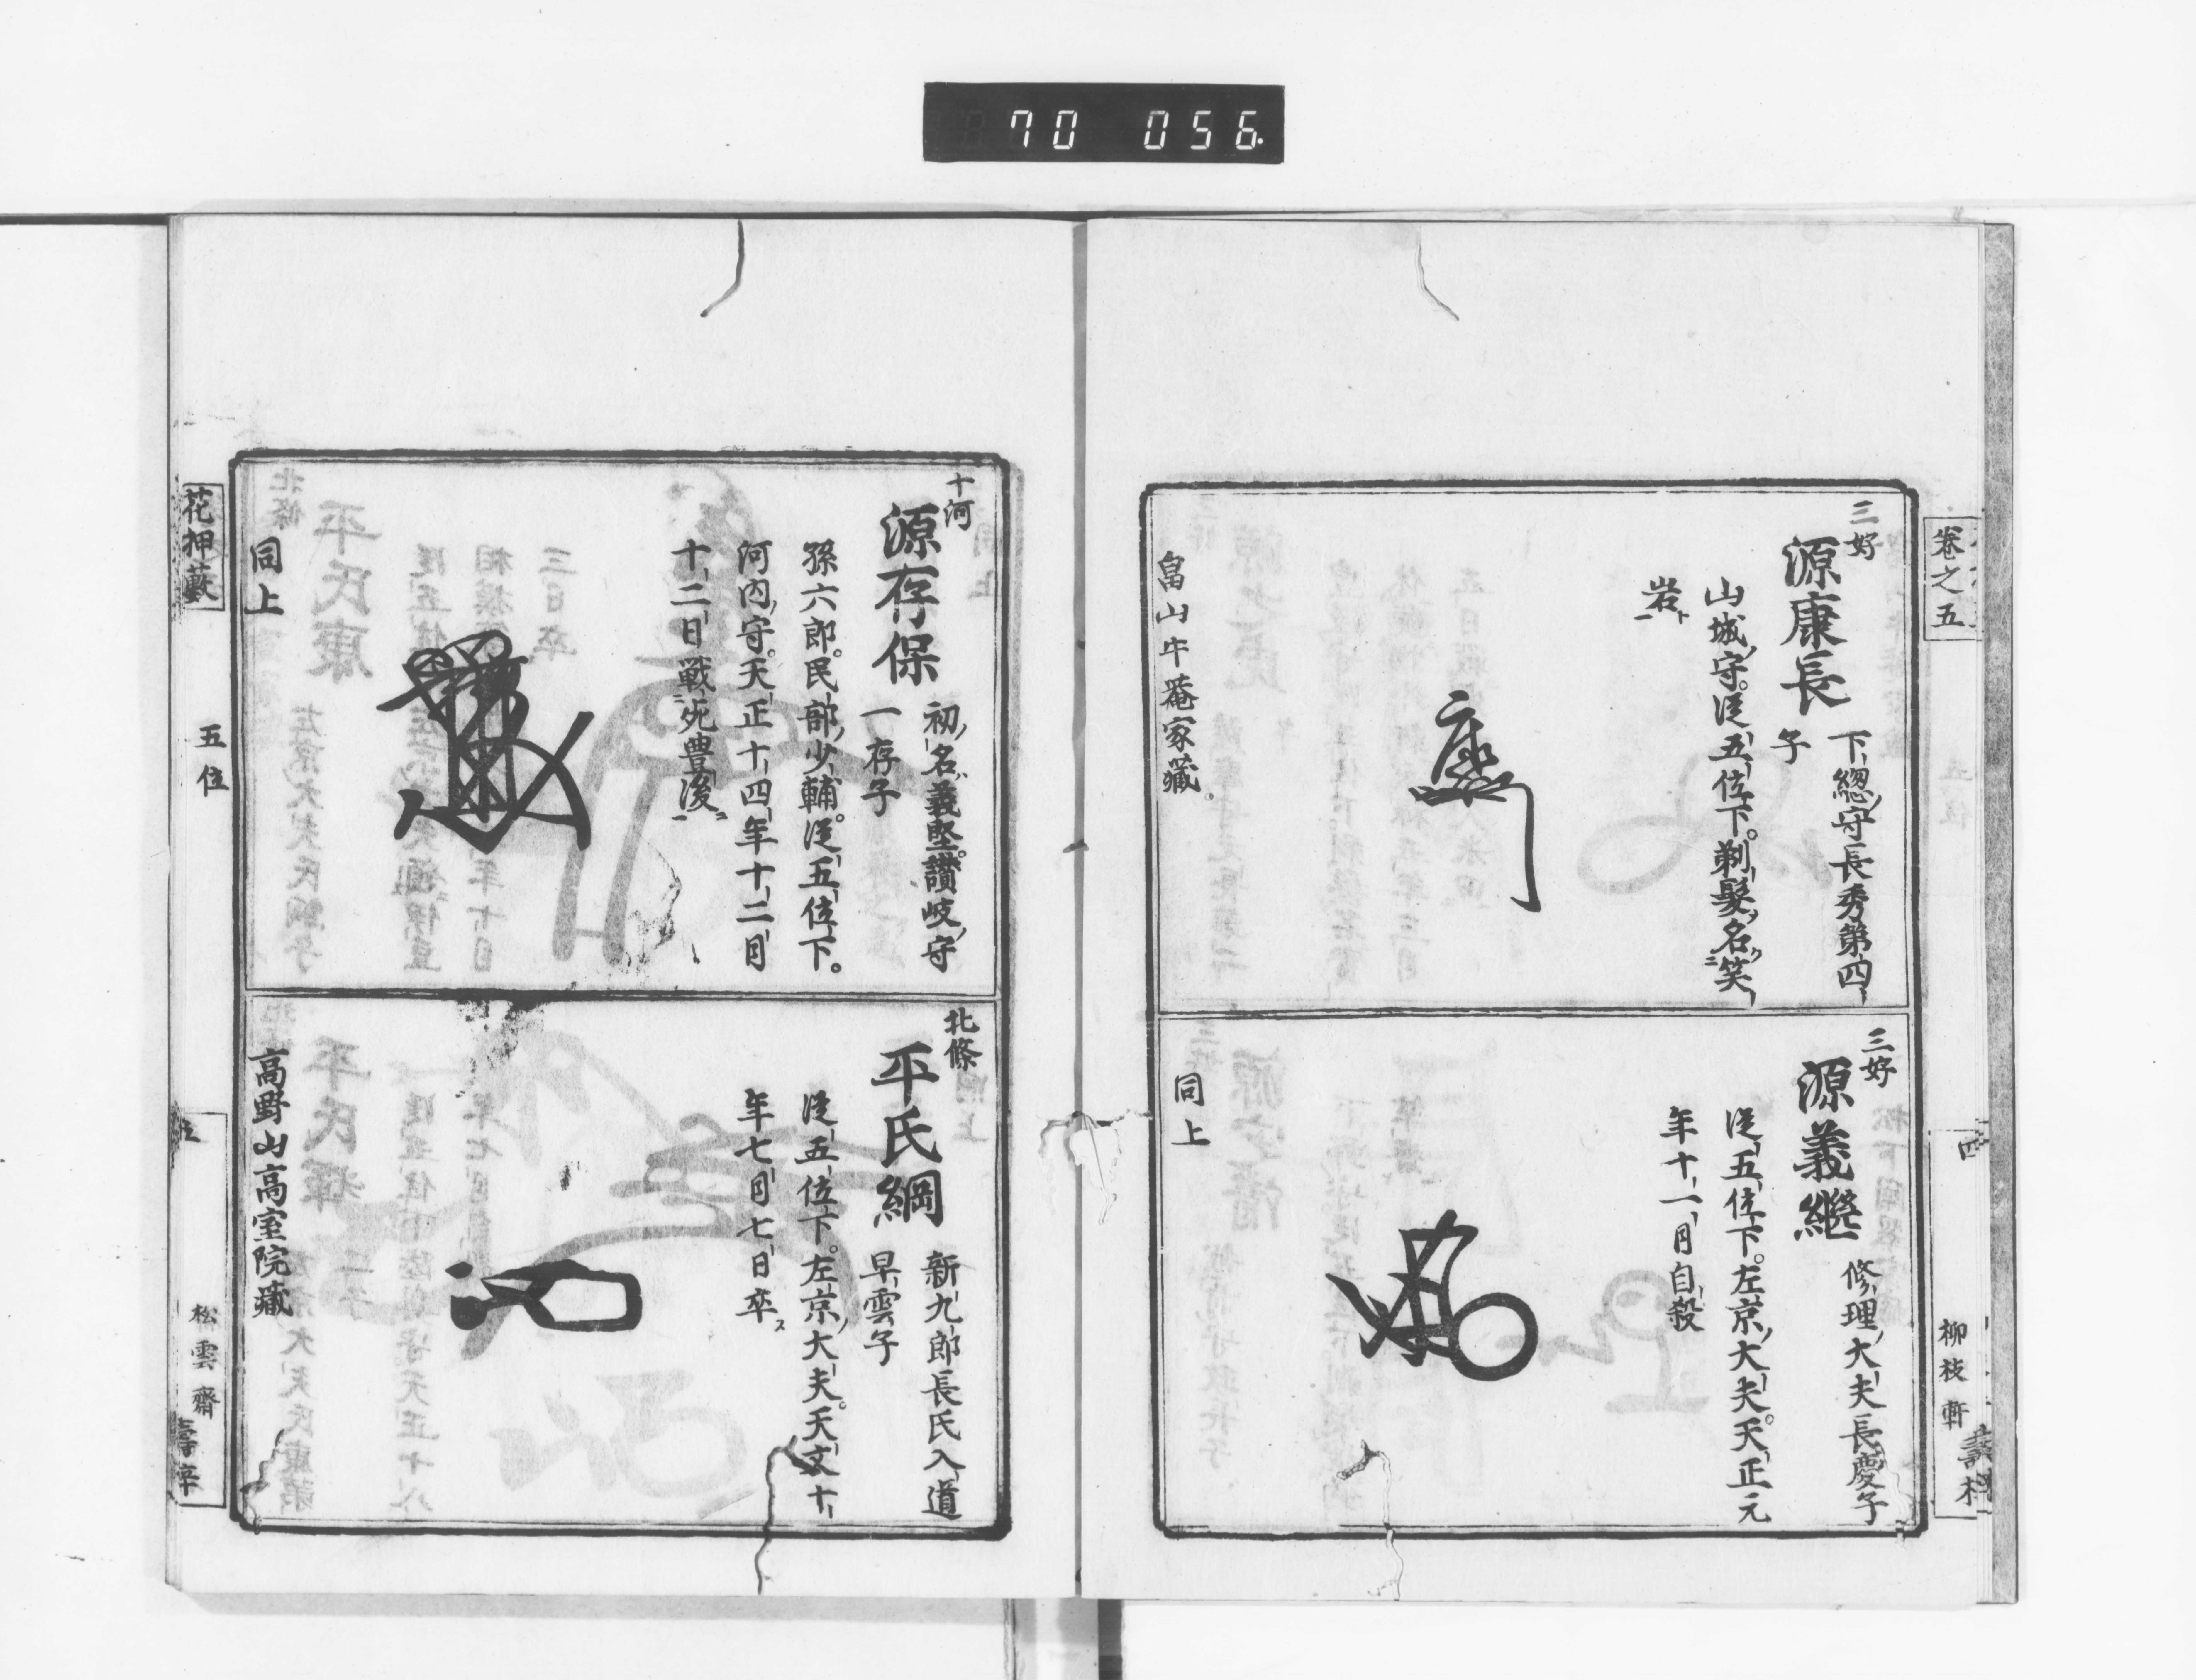 70 056
卷之五
四
柳枝軒
三好
源康長
下總守長秀第四
子
山城守。従五位下。剃髮名笑
岩
畠山牛菴家藏。
三好
源義繼
修理大夫長慶子
従五位下。左京大夫。天正元
年十一月自殺
同上
十河
源存保
初名義堅。讃岐守
一存子
孫六郎。民部少輔。従五位下。
河内守。天正十四年十二月
十二日戦死豊後
同上
北條
平氏綱
新九郎長氏入道
早雲子
従五位下。左京大夫。天文十
年七月七日卒
高野山高室院藏
花押藪
五位
松雲齋